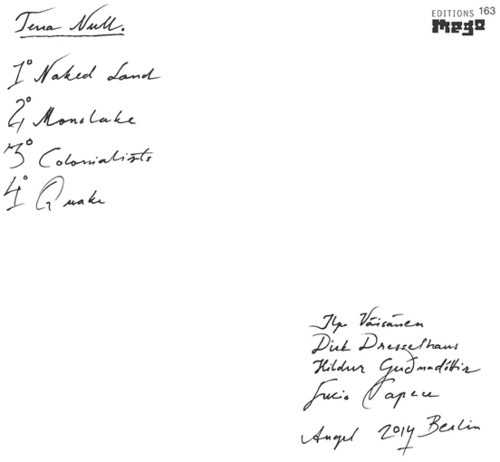 Terra Null.
EDITIONS 163
mego
1° Naked Land
2° Monolake
3° Colonialists
4° Quake
Ilpo Väisänen
Dirk Dresselhaus
Hildur Guðnadóttir
Lucio Capece
Angel 2014 Berlin